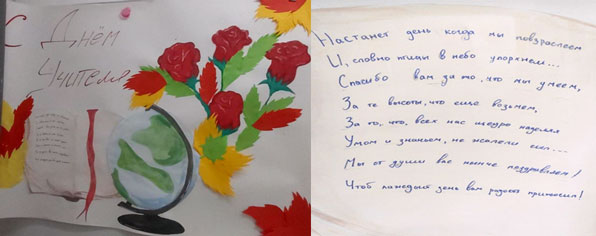 С Днём
Учителя
Настанет день когда мы повзрослеем
И, словно птицы в небо упорхнем...
Спасибо вам за то, что мы умеем,
За те высоты, что еще возьмем,
За то, что, всех нас щедро наделяя
Умом и знаньем, не жалели сил...
Мы от души вас нынче поздравляем!
Чтоб каждый день вам радость приносил!